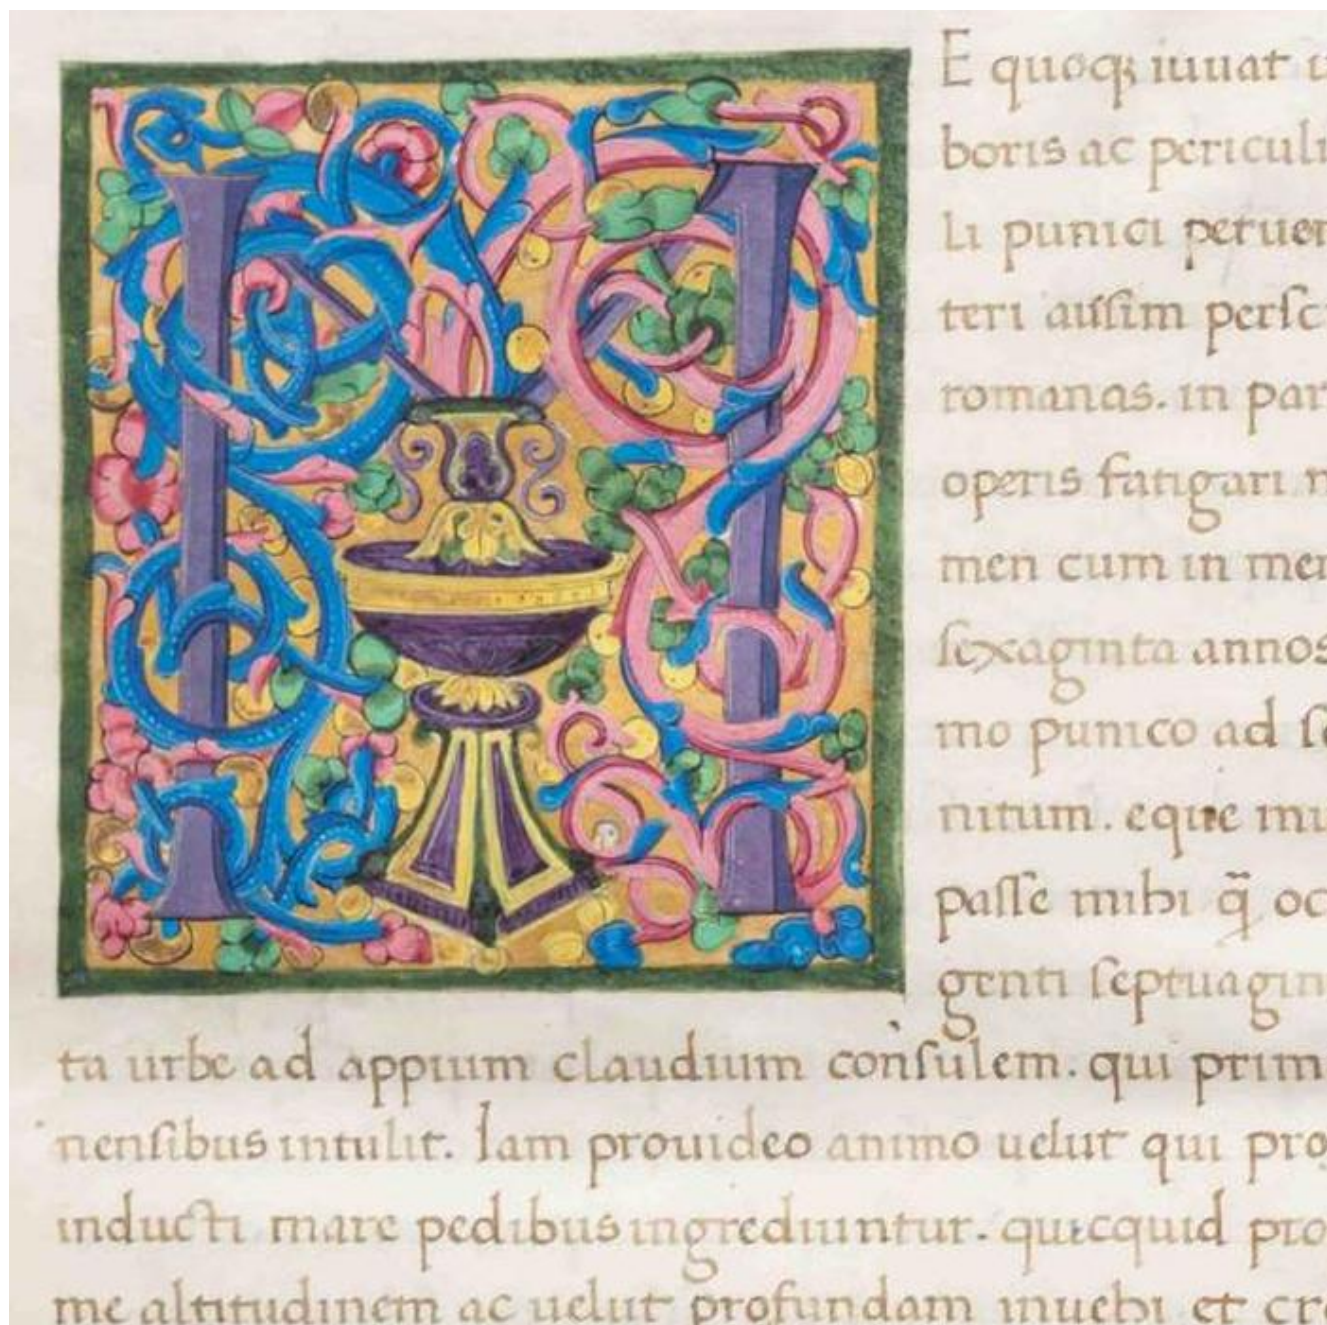 M
E quoqꝫ iuuat u
boris ac periculi
li punici peruen
teri ausim persc
romanas. in par
operis fatigari n
men cum in men
sexaginta annos
mo punico ad se
nitum. eque mu
passe mihi q̃ oc
genti septuagin
ta urbe ad appium claudium consulem. qui prim
nensibus intulit. Iam prouideo animo uelut qui pro
inducti mare pedibus ingrediuntur. quicquid pro
me altitudinem ac uelut profundam inuehi et cre